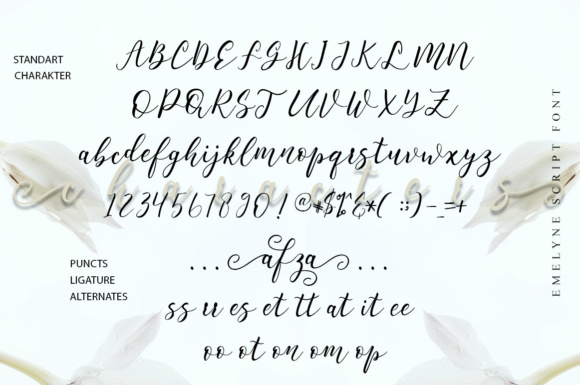 STANDART
CHARAKTER
ABCDEFGHIJKLMN
OPQRSTUVWXYZ
abcdefghijklmnopqrstuvwxyz
characters
1234567890!@#$%&*( :;)-_=+
EMELYNE SCRIPT FONT
PUNCTS
LIGATURE
ALTERNATES
...afza...
ss rr es et tt at it ee
oo ot on om op